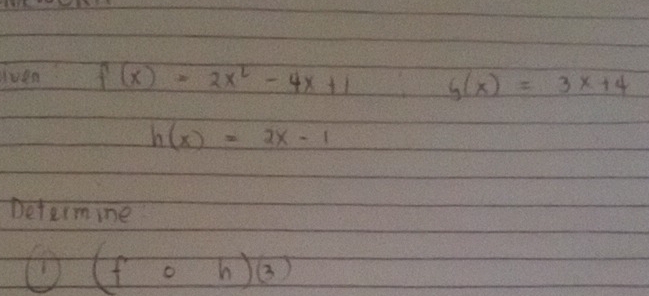 f(x) = 2x² - 4x + 1 g(x) = 3x + 4
h(x) = 2x - 1
Determine
① (f o h)(3)